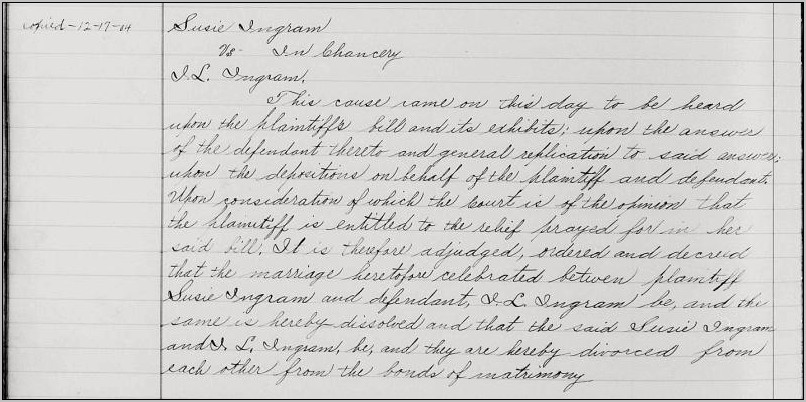 copied - 12-17-04
Susie Ingram
Vs. In Chancery
I. L. Ingram.
This cause came on this day to be heard
upon the plaintiff's bill and its exhibits; upon the answer
of the defendant thereto and general replication to said answer;
upon the depositions on behalf of the plaintiff and defendant.
Upon consideration of which the court is of the opinion that
the plaintiff is entitled to the relief prayed for in her
said bill. It is therefore adjudged, ordered and decreed
that the marriage heretofore celebrated betwen plaintiff
Susie Ingram and defendant, I. L. Ingram be, and the
same is hereby dissolved and that the said Susie Ingram
and I. L. Ingram, be, and they are hereby divorced from
each other from the bonds of matrimony